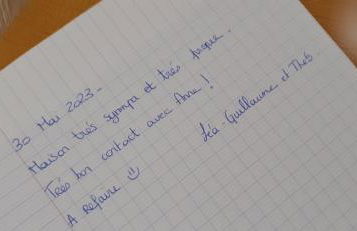 30 Mai 2023-
Maison très sympa et très propre.
Très bon contact avec Anne !
A Refaire ☺
Léa - Guillaume et Théo.